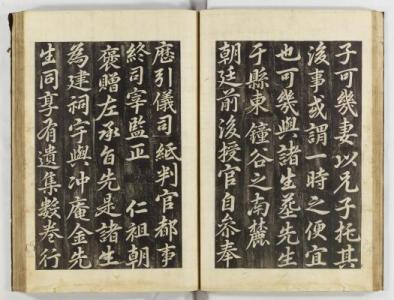 子可幾妻以兄子托其
後事或謂一時之便宜
也可幾與諸生葬先生
于縣東鐘谷之南麓
朝廷前後授官自參奉
應引儀司紙判官都事
終司宰監正 仁祖朝
褒贈左承旨先是諸生
為建祠宇與冲庵金先
生同享有遺集數卷行